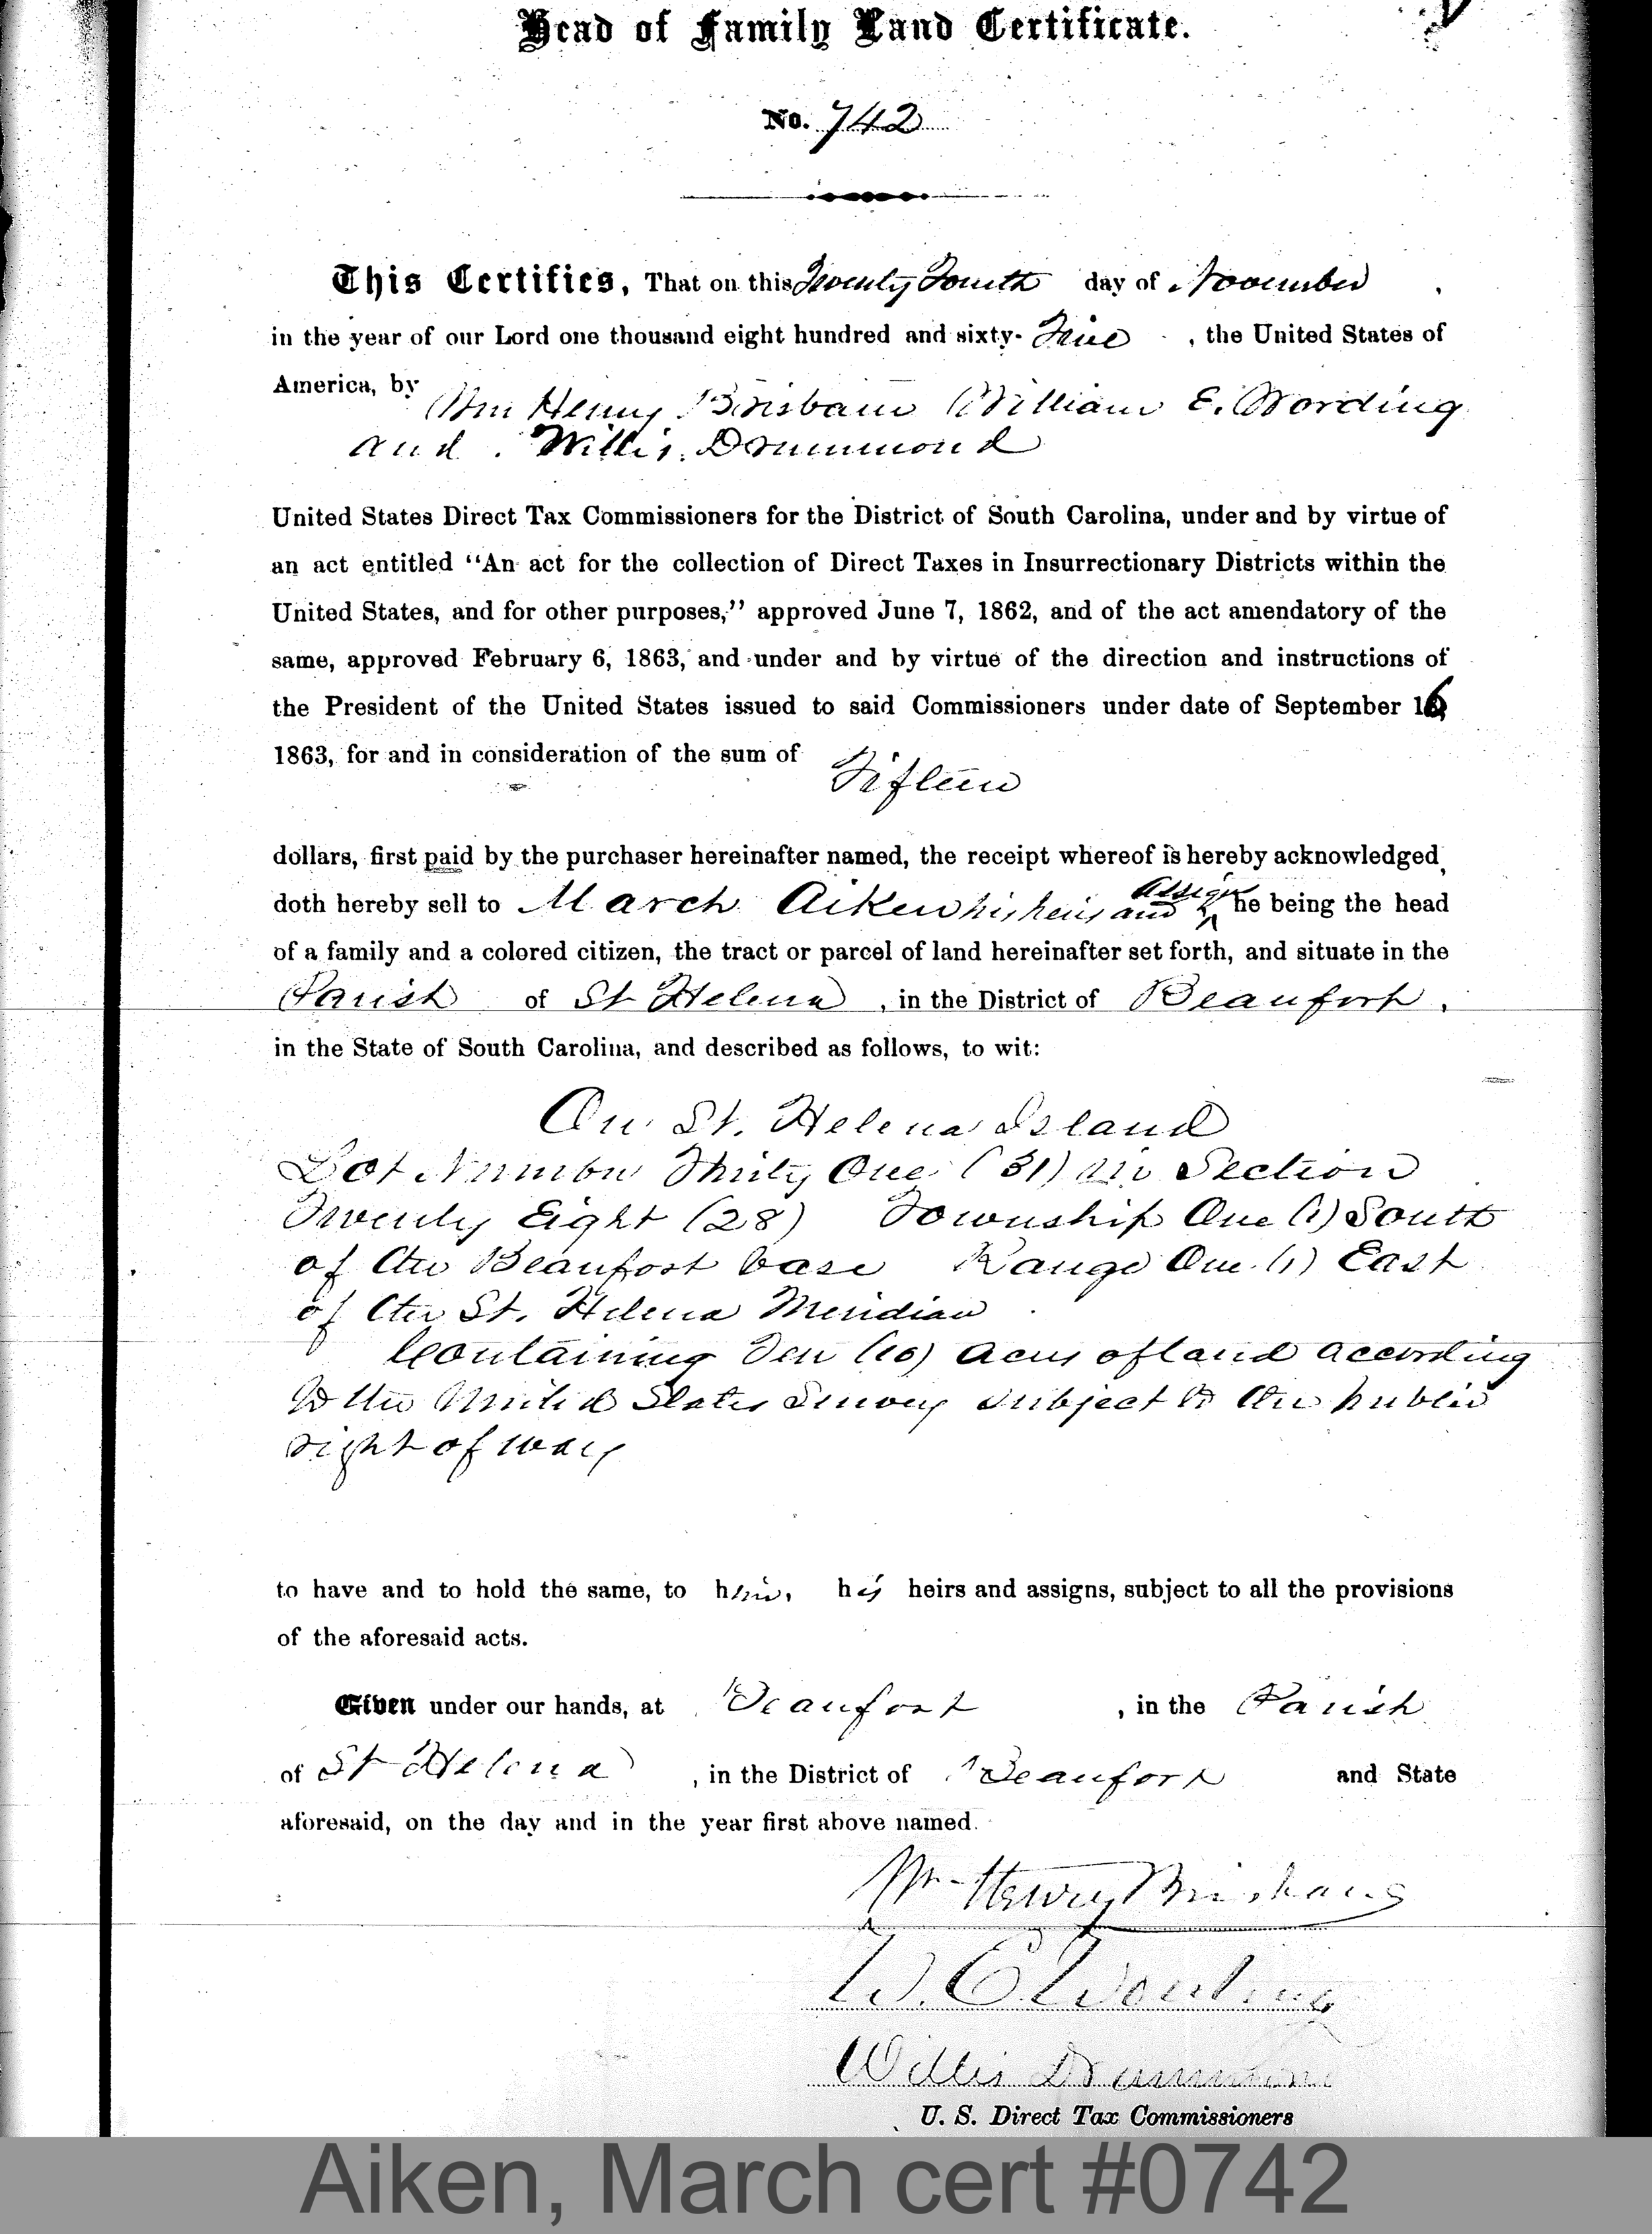 Head of Family Land Certificate.
No. 742
This Certifies, That on this Twenty Fourth day of November
in the year of our Lord one thousand eight hundred and sixty-Five, the United States of
America, by Wm Henry Brisbane William E. Wording
and Willis Drummond
United States Direct Tax Commissioners for the District of South Carolina, under and by virtue of
an act entitled “An act for the collection of Direct Taxes in Insurrectionary Districts within the
United States, and for other purposes,” approved June 7, 1862, and of the act amendatory of the
same, approved February 6, 1863, and under and by virtue of the direction and instructions of
the President of the United States issued to said Commissioners under date of September 16,
1863, for and in consideration of the sum of Fifteen
dollars, first paid by the purchaser hereinafter named, the receipt whereof is hereby acknowledged,
doth hereby sell to March Aiken his heirs and assigns he being the head
of a family and a colored citizen, the tract or parcel of land hereinafter set forth, and situate in the
Parish of St Helena, in the District of Beaufort,
in the State of South Carolina, and described as follows, to wit:
On St. Helena Island
Lot Number Thirty One (31) in Section
Twenty Eight (28) Township One (1) South
of the Beaufort base Range One (1) East
of the St. Helena Meridian
Containing Ten (10) acres of land according
to the United States Survey subject to the public
right of way
to have and to hold the same, to him, his heirs and assigns, subject to all the provisions
of the aforesaid acts.
Given under our hands, at Beaufort, in the Parish
of St Helena, in the District of Beaufort and State
aforesaid, on the day and in the year first above named.
Wm Henry Brisbane
W. E. Wording
Willis Drummond
U. S. Direct Tax Commissioners
Aiken, March cert #0742